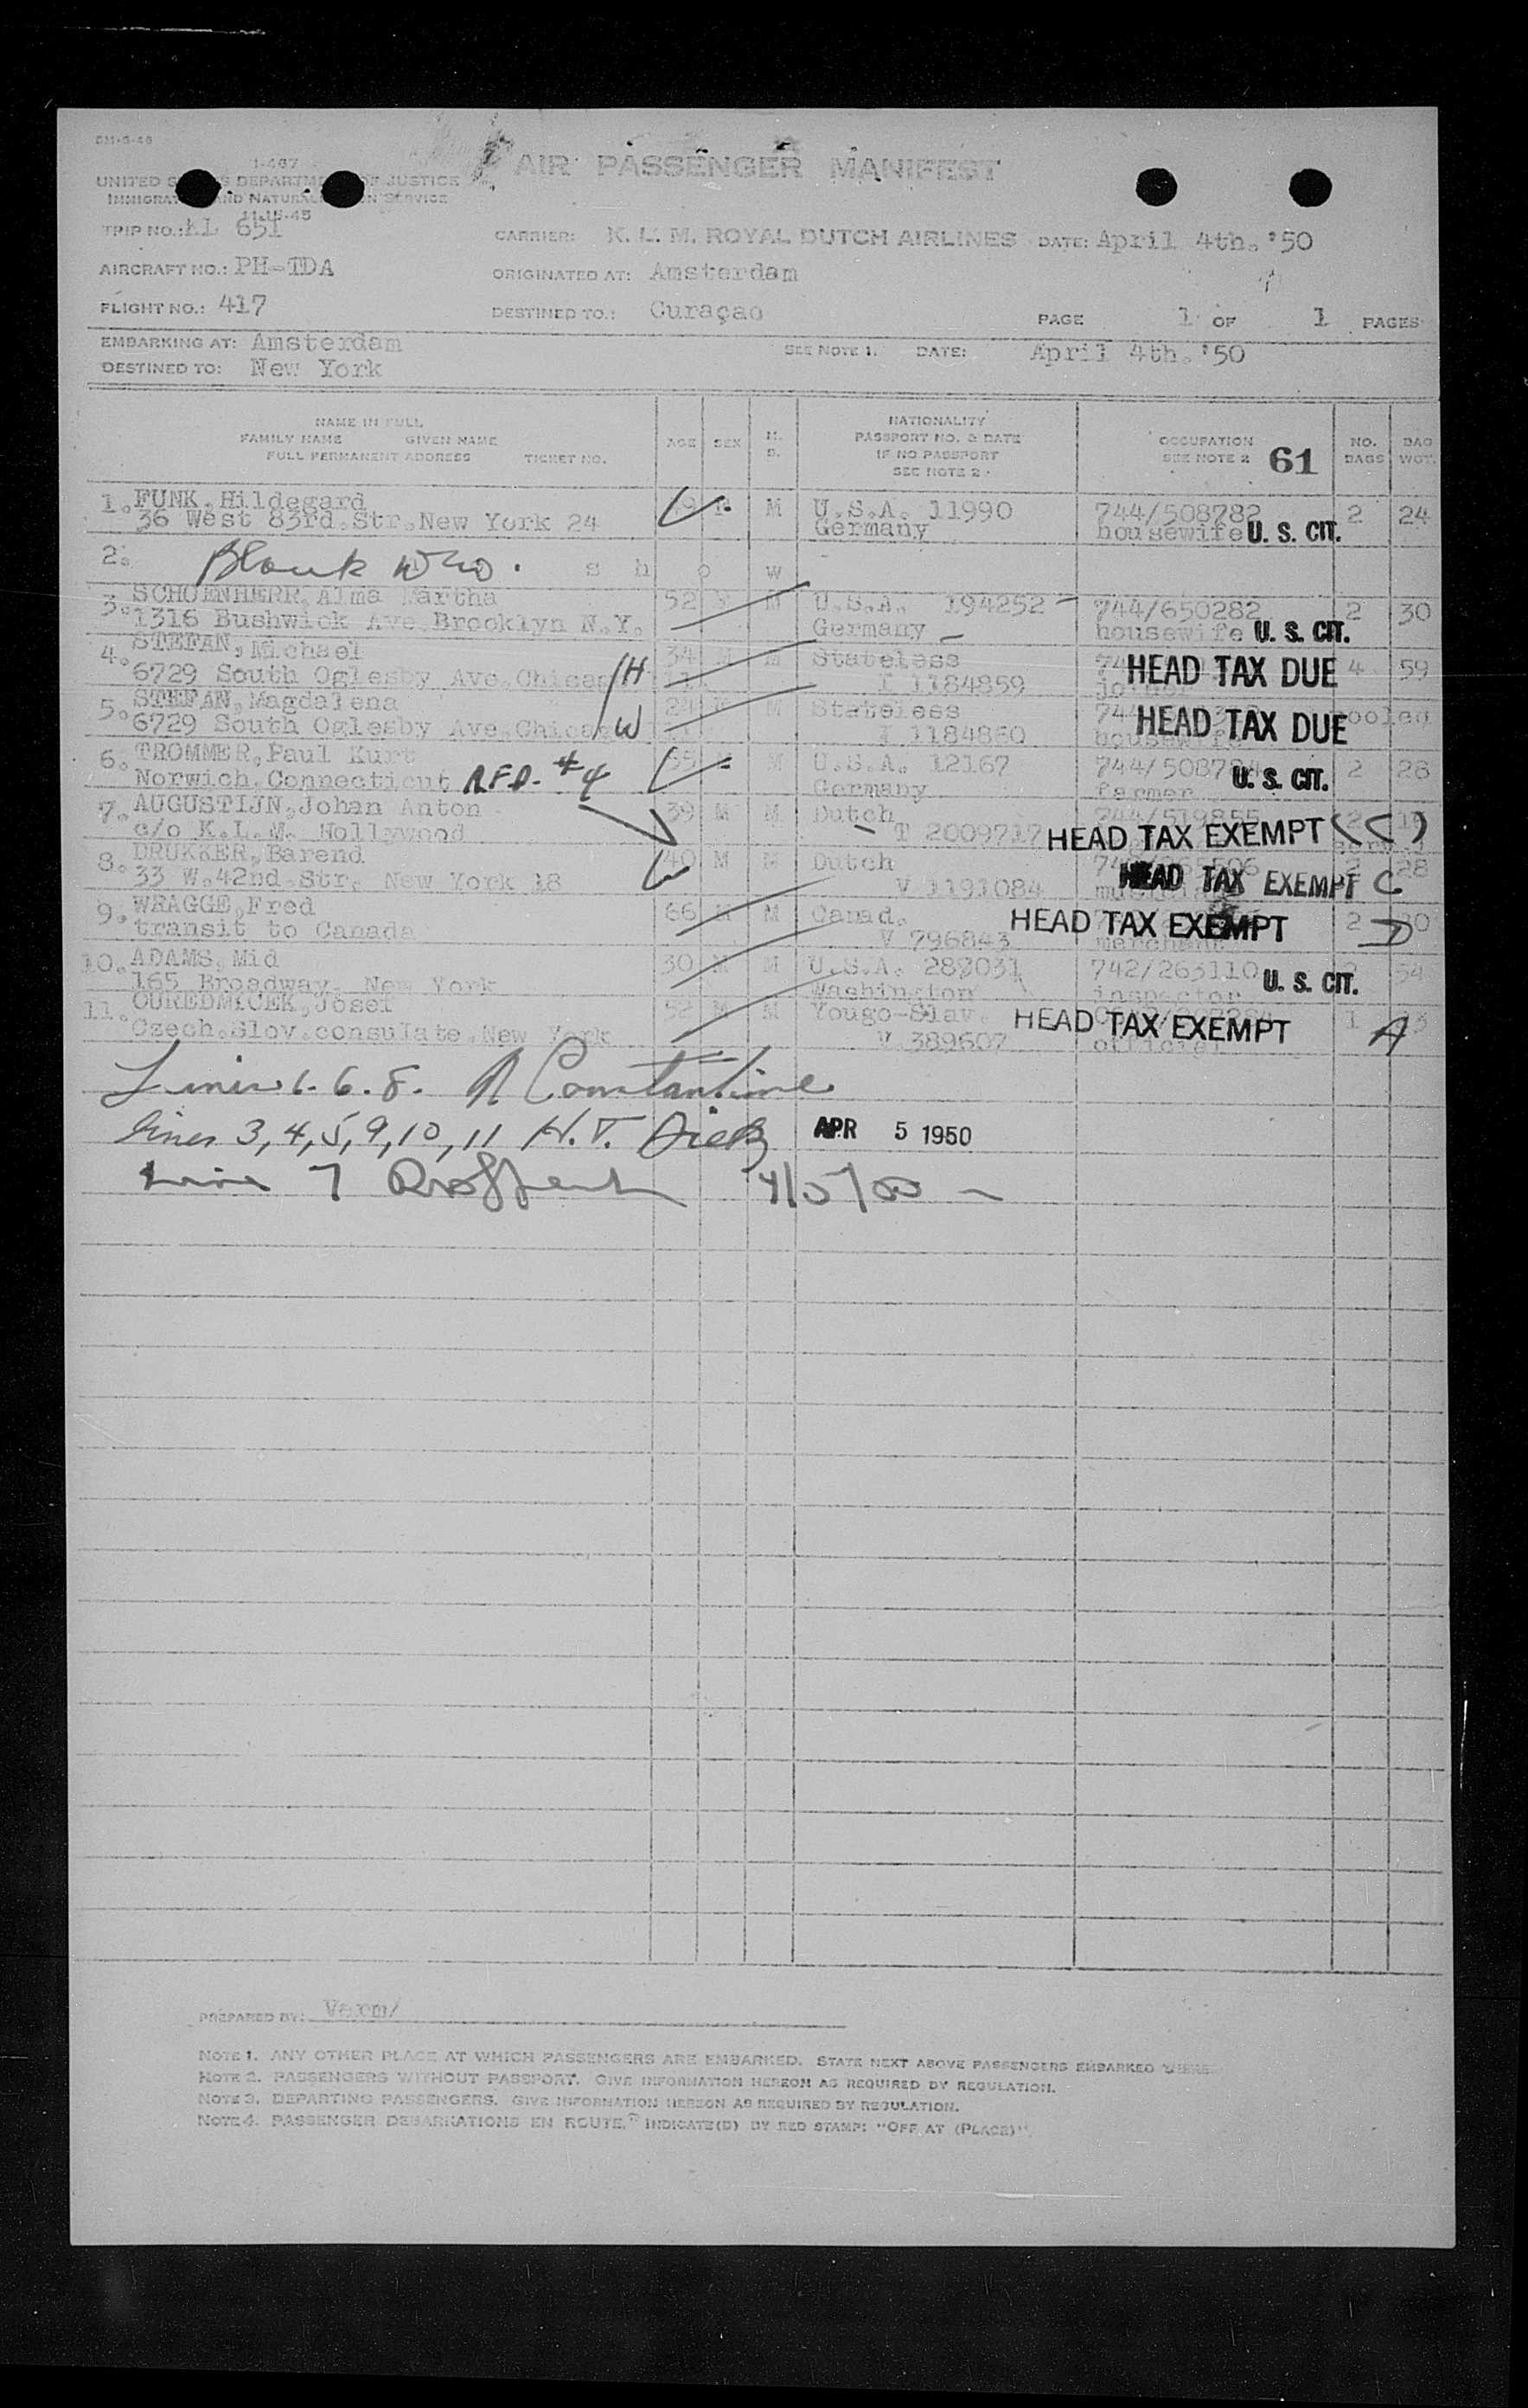 SM-5-46
I-467
AIR PASSENGER MANIFEST
UNITED S S DEPARTM OF JUSTICE
IMMIGRAT AND NATURAL ON SERVICE
11-15-45
TRIP NO.: KL 651 CARRIER: K. L. M. ROYAL DUTCH AIRLINES DATE: April 4th. '50
AIRCRAFT NO.: PH-TDA ORIGINATED AT: Amsterdam
FLIGHT NO.: 417 DESTINED TO.: Curaçao PAGE 1 OF 1 PAGES
EMBARKING AT: Amsterdam SEE NOTE 1. DATE: April 4th. '50
DESTINED TO: New York
NAME IN FULL
FAMILY NAME GIVEN NAME
FULL PERMANENT ADDRESS TICKET NO.
AGE SEX M. S.
NATIONALITY
PASSPORT NO. & DATE
IF NO PASSPORT
SEE NOTE 2
OCCUPATION
SEE NOTE 2 61
NO. BAGS
BAG WGT.
1. FUNK, Hildegard F M U.S.A. 11990 744/508782 2 24
36 West 83rd. Str. New York 24 Germany housewife U. S. CIT.
2. Blank s h o w
3. SCHOENHERR, Alma Martha 52 F M U.S.A. 194252 744/650282 2 30
1316 Bushwick Ave. Brooklyn N.Y. Germany housewife U. S. CIT.
4. STEFAN, Michael 34 M M Stateless HEAD TAX DUE 4 59
6729 South Oglesby Ave. Chicag H I 1184859
5. STEFAN, Magdalena 24 M Stateless HEAD TAX DUE pooled
6729 South Oglesby Ave. Chicag W I 1184860 housewife
6. TROMMER, Paul Kurt M U.S.A. 12167 744/508784 2 28
Norwich, Connecticut R.F.D. #4 Germany farmer U. S. CIT.
7. AUGUSTIJN, Johan Anton 39 M M Dutch 744/519855 2
c/o K.L.M. Hollywood T 2009717 HEAD TAX EXEMPT (C)
8. DRUKKER, Barend 40 M M Dutch 2 28
33 W. 42nd Str. New York 18 V 1191084 HEAD TAX EXEMPT C
9. WRAGGE, Fred 66 M M Canad. HEAD TAX EXEMPT 2 D
transit to Canada V 796843 merchant
10. ADAMS, Mid 30 M M U.S.A. 287031 742/263110 54
165 Broadway, New York Washington inspector U. S. CIT.
11. OUREDNICEK, Josef 52 M M Yougo-Slav. HEAD TAX EXEMPT 1 A
Czech.Slov.consulate, New York V 389607 official
Lines 1. 6. 8. R Constantine
lines 3, 4, 5, 9, 10, 11 H. T. APR 5 1950
Line 7 4/5/50
PREPARED BY: Verm/
NOTE 1. ANY OTHER PLACE AT WHICH PASSENGERS ARE EMBARKED. STATE NEXT ABOVE PASSENGERS EMBARKED THERE
NOTE 2. PASSENGERS WITHOUT PASSPORT. GIVE INFORMATION HEREON AS REQUIRED BY REGULATION.
NOTE 3. DEPARTING PASSENGERS. GIVE INFORMATION HEREON AS REQUIRED BY REGULATION.
NOTE 4. PASSENGER DEBARKATIONS EN ROUTE, INDICATE(D) BY RED STAMP: "OFF AT (PLACE)".